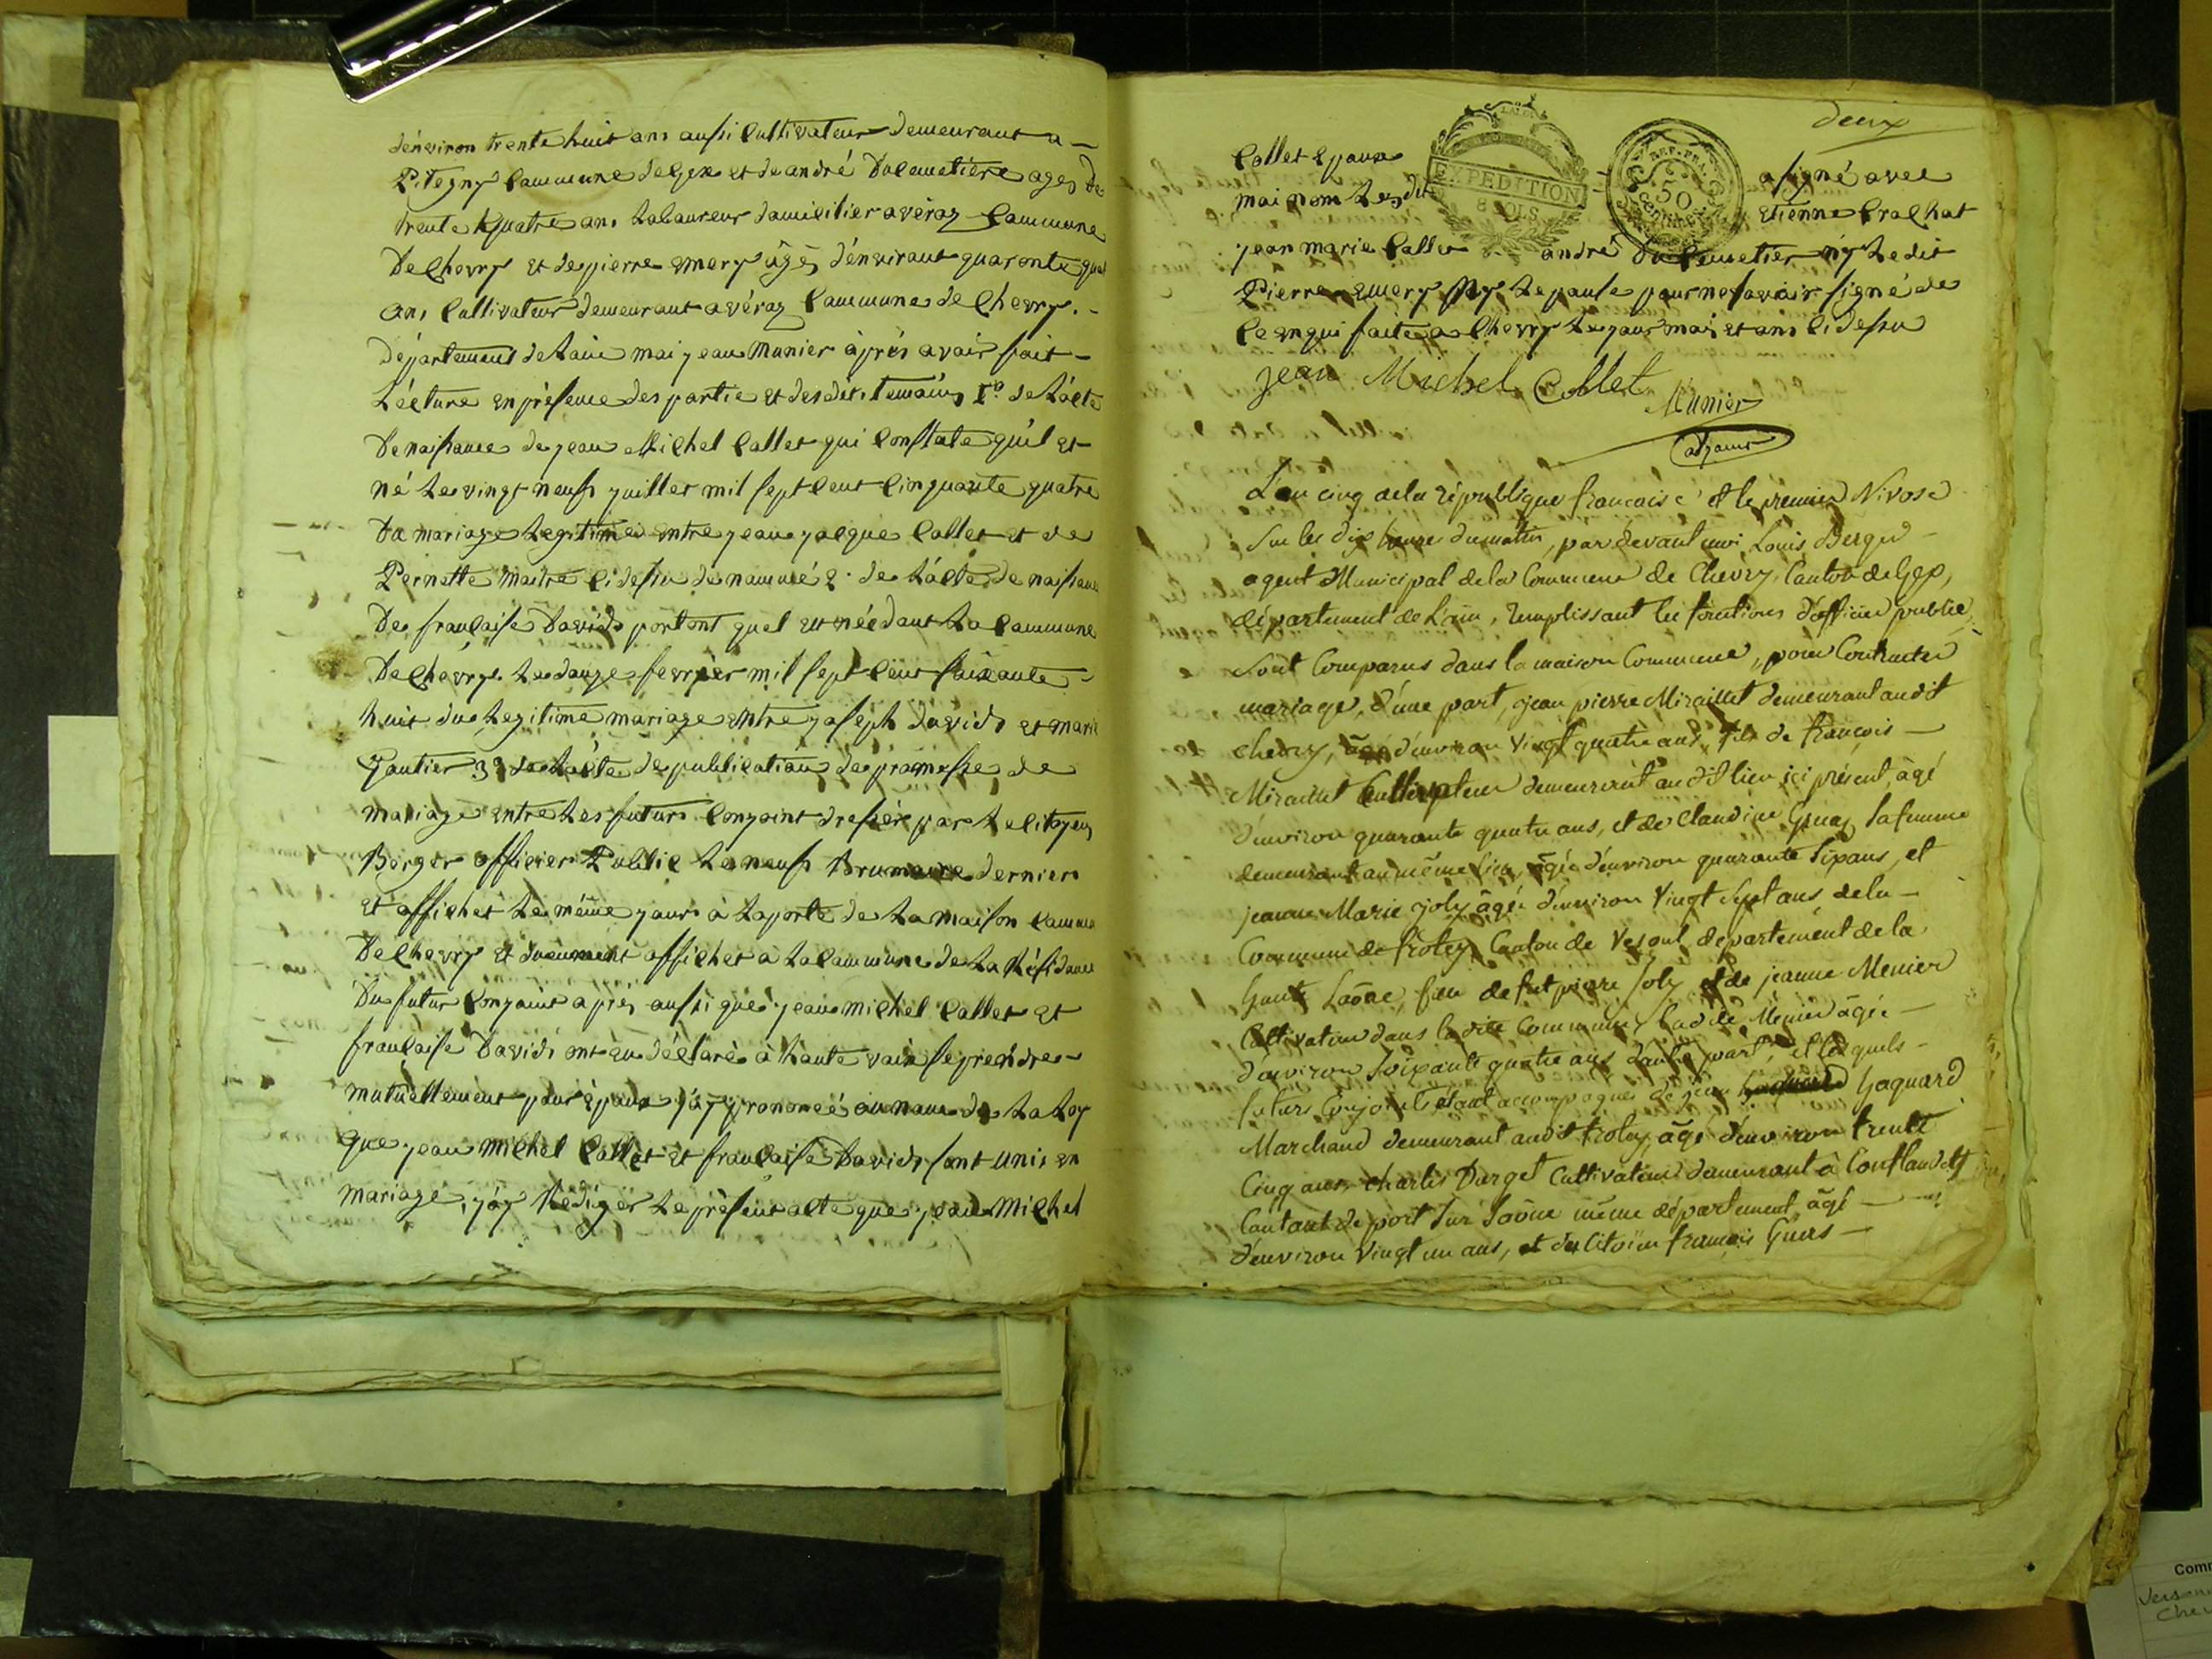 d'énviron trente huit ans aussi Cultivateur demeurant a
Pitegny Commune de Gex et de andré Ducimetière ages de
trente quatre ans Laboureur domicilier a véraz Commune
De Chevry et de pierre emery âgés d'énviront quarante
ans Cultivateur demeurant a véraz Commune de Chevry.
Département de Lain moi jean Munier après avoir fait
Lécture en présence des partie et desdit temoins 1º de Lácte
De naissance de jean Michel Collet qui Constate quil et
né Le vingt neuf juillet mil sept Cent Cinquante quatre
Du mariage Legitime entre jean jacque Collet et de
Pernette Maitre Ci dessu de nommé 2º de Lácte de naissance
De francoise Davids portant quel est née dant La Commune
De Chévry Le douze fevrier mil sept Cent soixante
huit du Legitime mariage entre joséph davids et marie
Gautier 3º de Lácte de publication de promesse de
mariage entre Les futurs Conjoint dressér par Le Citoyen
Berger officier Public Le neuf Brumaire dernier
et affichét Le même jour à La porte de La maison Commune
De Chevry et duement affichet à La Commune de La Résidance
Du futur Conjoint aprés aussi que jean michel Collet et
francoise Davids ont eu déclaré à haute voix se prendre
mutuellement pour épous j'ay prononcé au nom de La Loy
que jean michel Collet et francoise Davids sont unis en
mariage, j'áy Rediger Le présent acte que jean Michel
deux
Collet Epoux
EXPEDITION
8 SOLS
REP. FRA.
50
CENTIMES
a signé avec
moi nom Lesdit
etienne Crachat
jean marie Collet andré Ducimetier ny Le dit
Pierre emery Ny Lepouse pour ne savoir signé de
Ce enqui faite a Chevry Le jour mois et ans Ci dessu
jean Michel Collet
Munier
adjoint
L'an cinq de la république francaise et le premier Nivose
Sur les dix heures du matin, par devant moi Louis Berger
agent Municipal de la Commune de Chevry, Canton de Gex,
département de L'ain, remplissant les fonctions d'officier public
Sont Comparus dans la maison Commune, pour Contracter
mariage, d'une part, jean pierre Miraillet demeurant audit
chevry, âgé d'environ vingt quatre ans, fils de françois
Miraillet Cultivateur demeurant au dit lieu, ici présent, âgé
d'environ quarante quatre ans, et de Claudine Gruaz sa femme
demeurant au même lieu, âgée d'environ quarante six ans, et
jeanne Marie joly âgée d'environ Vingt Sept ans de la
Commune de froley Canton de Vesoul département de la
haute Saône, feu defut pierre Joly et de jeanne Menier
Cultivateur dans la dite Commune, Ladite Menier âgée
d'environ Soixante quatre ans d'autre part, et lesquels
futurs Conjoints étant accompagnés de jean haquard
Marchand demeurant audit froley, âgé d'environ trente
Cinq ans, charles Darget Cultivateur demeurant à Conflandey
Cantont de port Sur Saône même département, âgé
d'environ Vingt un ans, et du Citoïen francois Guers